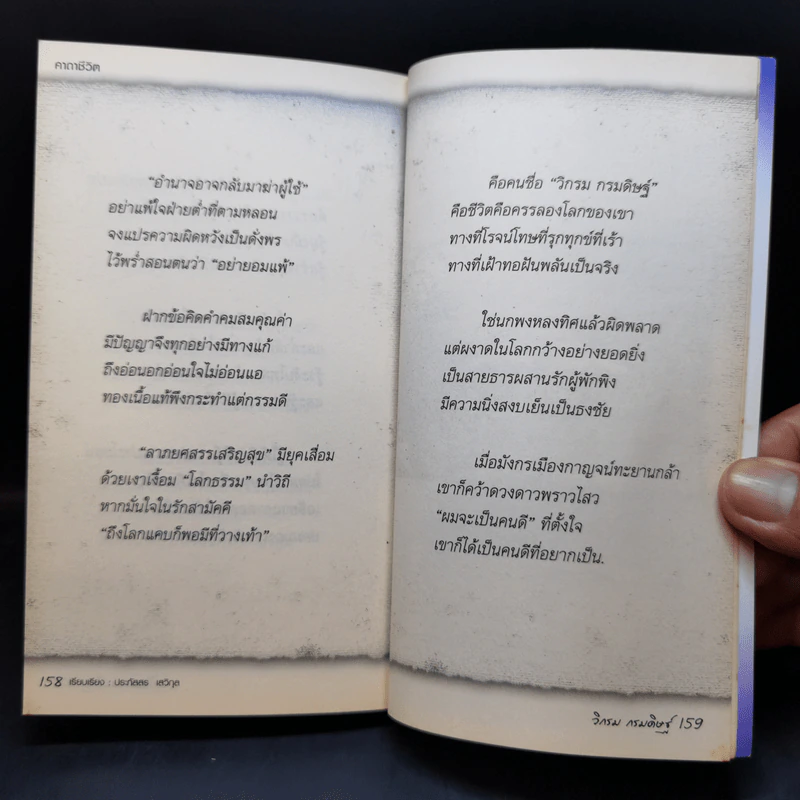 คาถาชีวิต
“อำนาจอาจกลับมาฆ่าผู้ใช้”
อย่าแพ้ใจฝ่ายต่ำที่ตามหลอน
จงแปรความผิดหวังเป็นดั่งพร
ไว้พร่ำสอนตนว่า “อย่ายอมแพ้”
ฝากข้อคิดคำคมสมคุณค่า
มีปัญญาจึงทุกอย่างมีทางแก้
ถึงอ่อนอกอ่อนใจไม่อ่อนแอ
ทองเนื้อแท้พึงกระทำแต่กรรมดี
“ลาภยศสรรเสริญสุข” มียุคเสื่อม
ด้วยเงาเงื้อม “โลกธรรม” นำวิถี
หากมั่นใจในรักสามัคคี
“ถึงโลกแคบก็พอมีที่วางเท้า”
158 เรียบเรียง : ประภัสสร เสวิกุล
คือคนชื่อ “วิกรม กรมดิษฐ์”
คือชีวิตคือครรลองโลกของเขา
ทางที่โรจน์โทษที่รุกทุกข์ที่เร้า
ทางที่เฝ้าทอฝันพลันเป็นจริง
ใช่นกพงหลงทิศแล้วผิดพลาด
แต่ผงาดในโลกกว้างอย่างยอดยิ่ง
เป็นสายธารผสานรักผู้พักพิง
มีความนิ่งสงบเย็นเป็นธงชัย
เมื่อมังกรเมืองกาญจน์ทะยานกล้า
เขาก็คว้าดวงดาวพราวไสว
“ผมจะเป็นคนดี” ที่ตั้งใจ
เขาก็ได้เป็นคนดีที่อยากเป็น.
วิกรม กรมดิษฐ์ 159